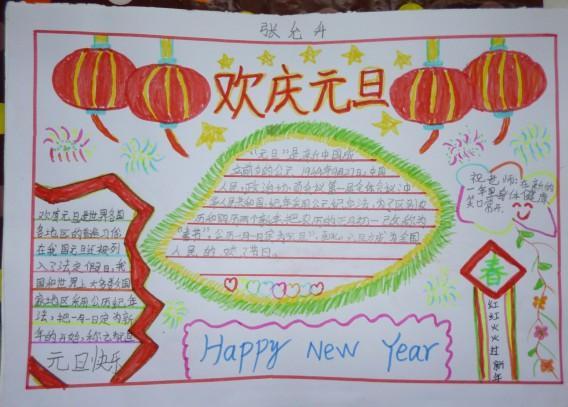 张允舟
欢庆元旦
"元旦"是新中国成
立前夕的公元1949年9月27日,中国
人民政治协商会议第一届全体会议,中
华人民共和国,纪年采用公元纪年法,为了区别农
历和阳历两个新年,把农历的正月初一已改称为
"春节",公历一月一日定为"元旦",
人民的欢
节日。
祝老师:在新的
一年里身体健康
笑口常开
欢度元旦是世界各国
各地区的普遍习俗
在我国元旦已被列
入了法定假日,我
国和世界上大多数国
家地区采用公历纪年
法,把一月一日定为新
年的开始,称之为
元旦快乐
春
红红火火过新年
Happy New Year